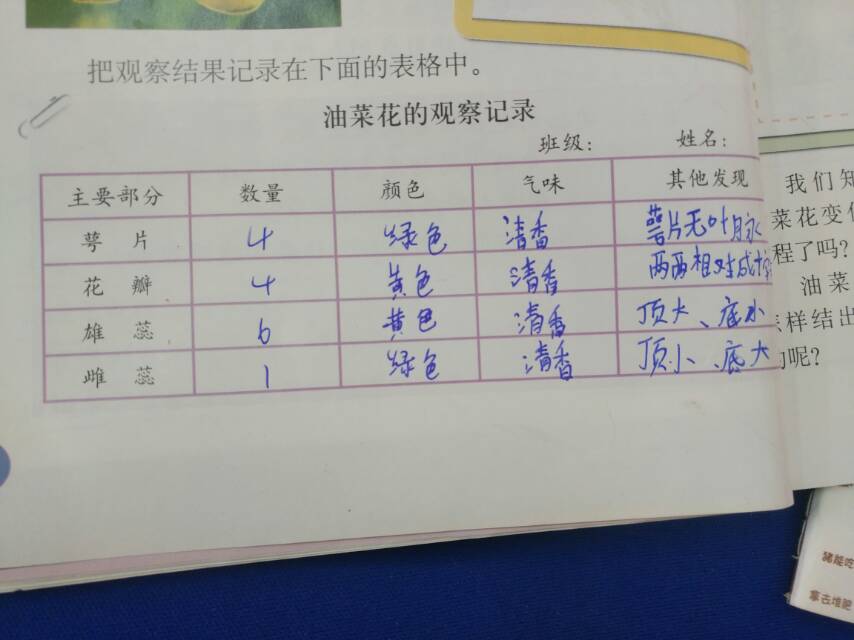 把观察结果记录在下面的表格中。
油菜花的观察记录
班级: 姓名:
主要部分 数量 颜色 气味 其他发现
萼片 4 绿色 清香 萼片无叶脉
花瓣 4 黄色 清香 两两相对成十字
雄蕊 6 黄色 清香 顶大、底小
雌蕊 1 绿色 清香 顶小、底大
我们知
菜花变化
程了吗?
油菜
怎样结出
的呢?
猪能吃
拿去堆肥